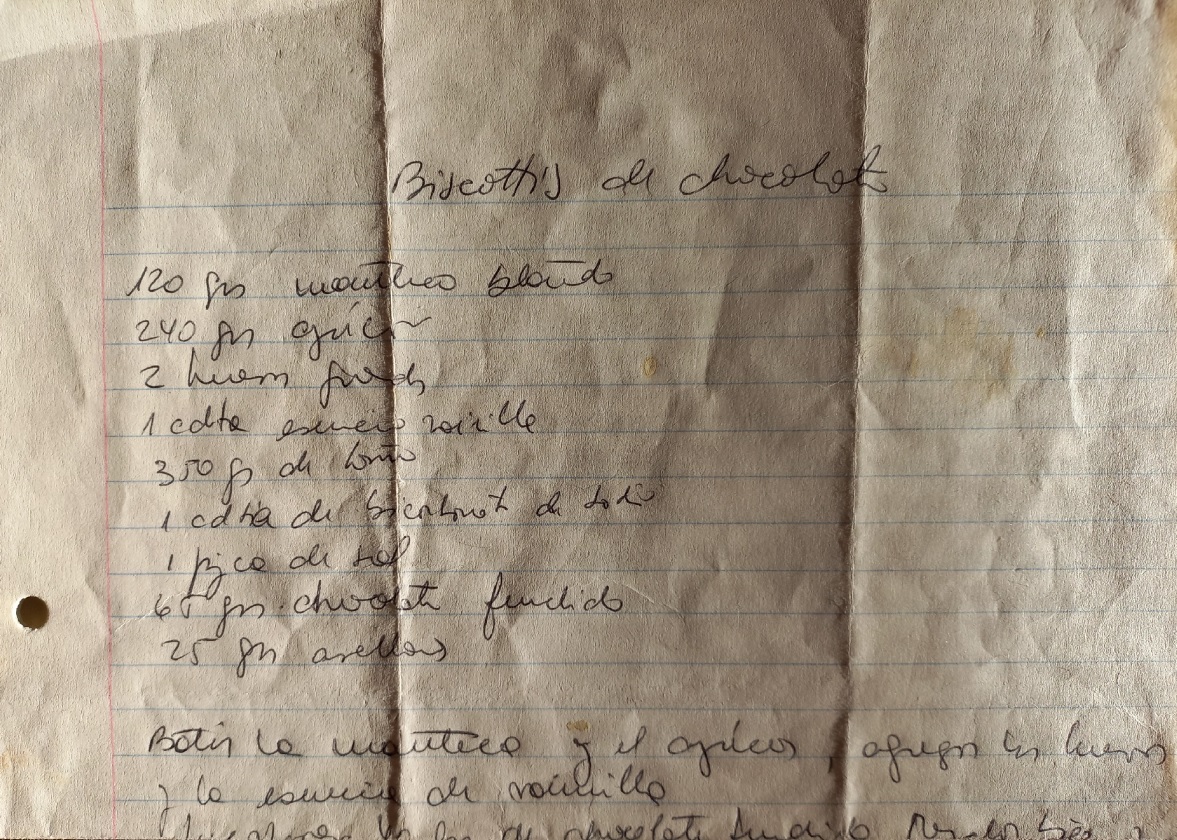 Biscottis de chocolate
120 grs manteca blanda
240 grs azúcar
2 huevos grandes
1 cdta esencia vainilla
350 gs de
1 cdta de bicarbonato de sodio
1 pizca de sal
65 grs. chocolate fundido
25 grs avellanas
Batir la manteca y el azúcar, agregar los huevos
y la esencia de vainilla
de chocolate fundido